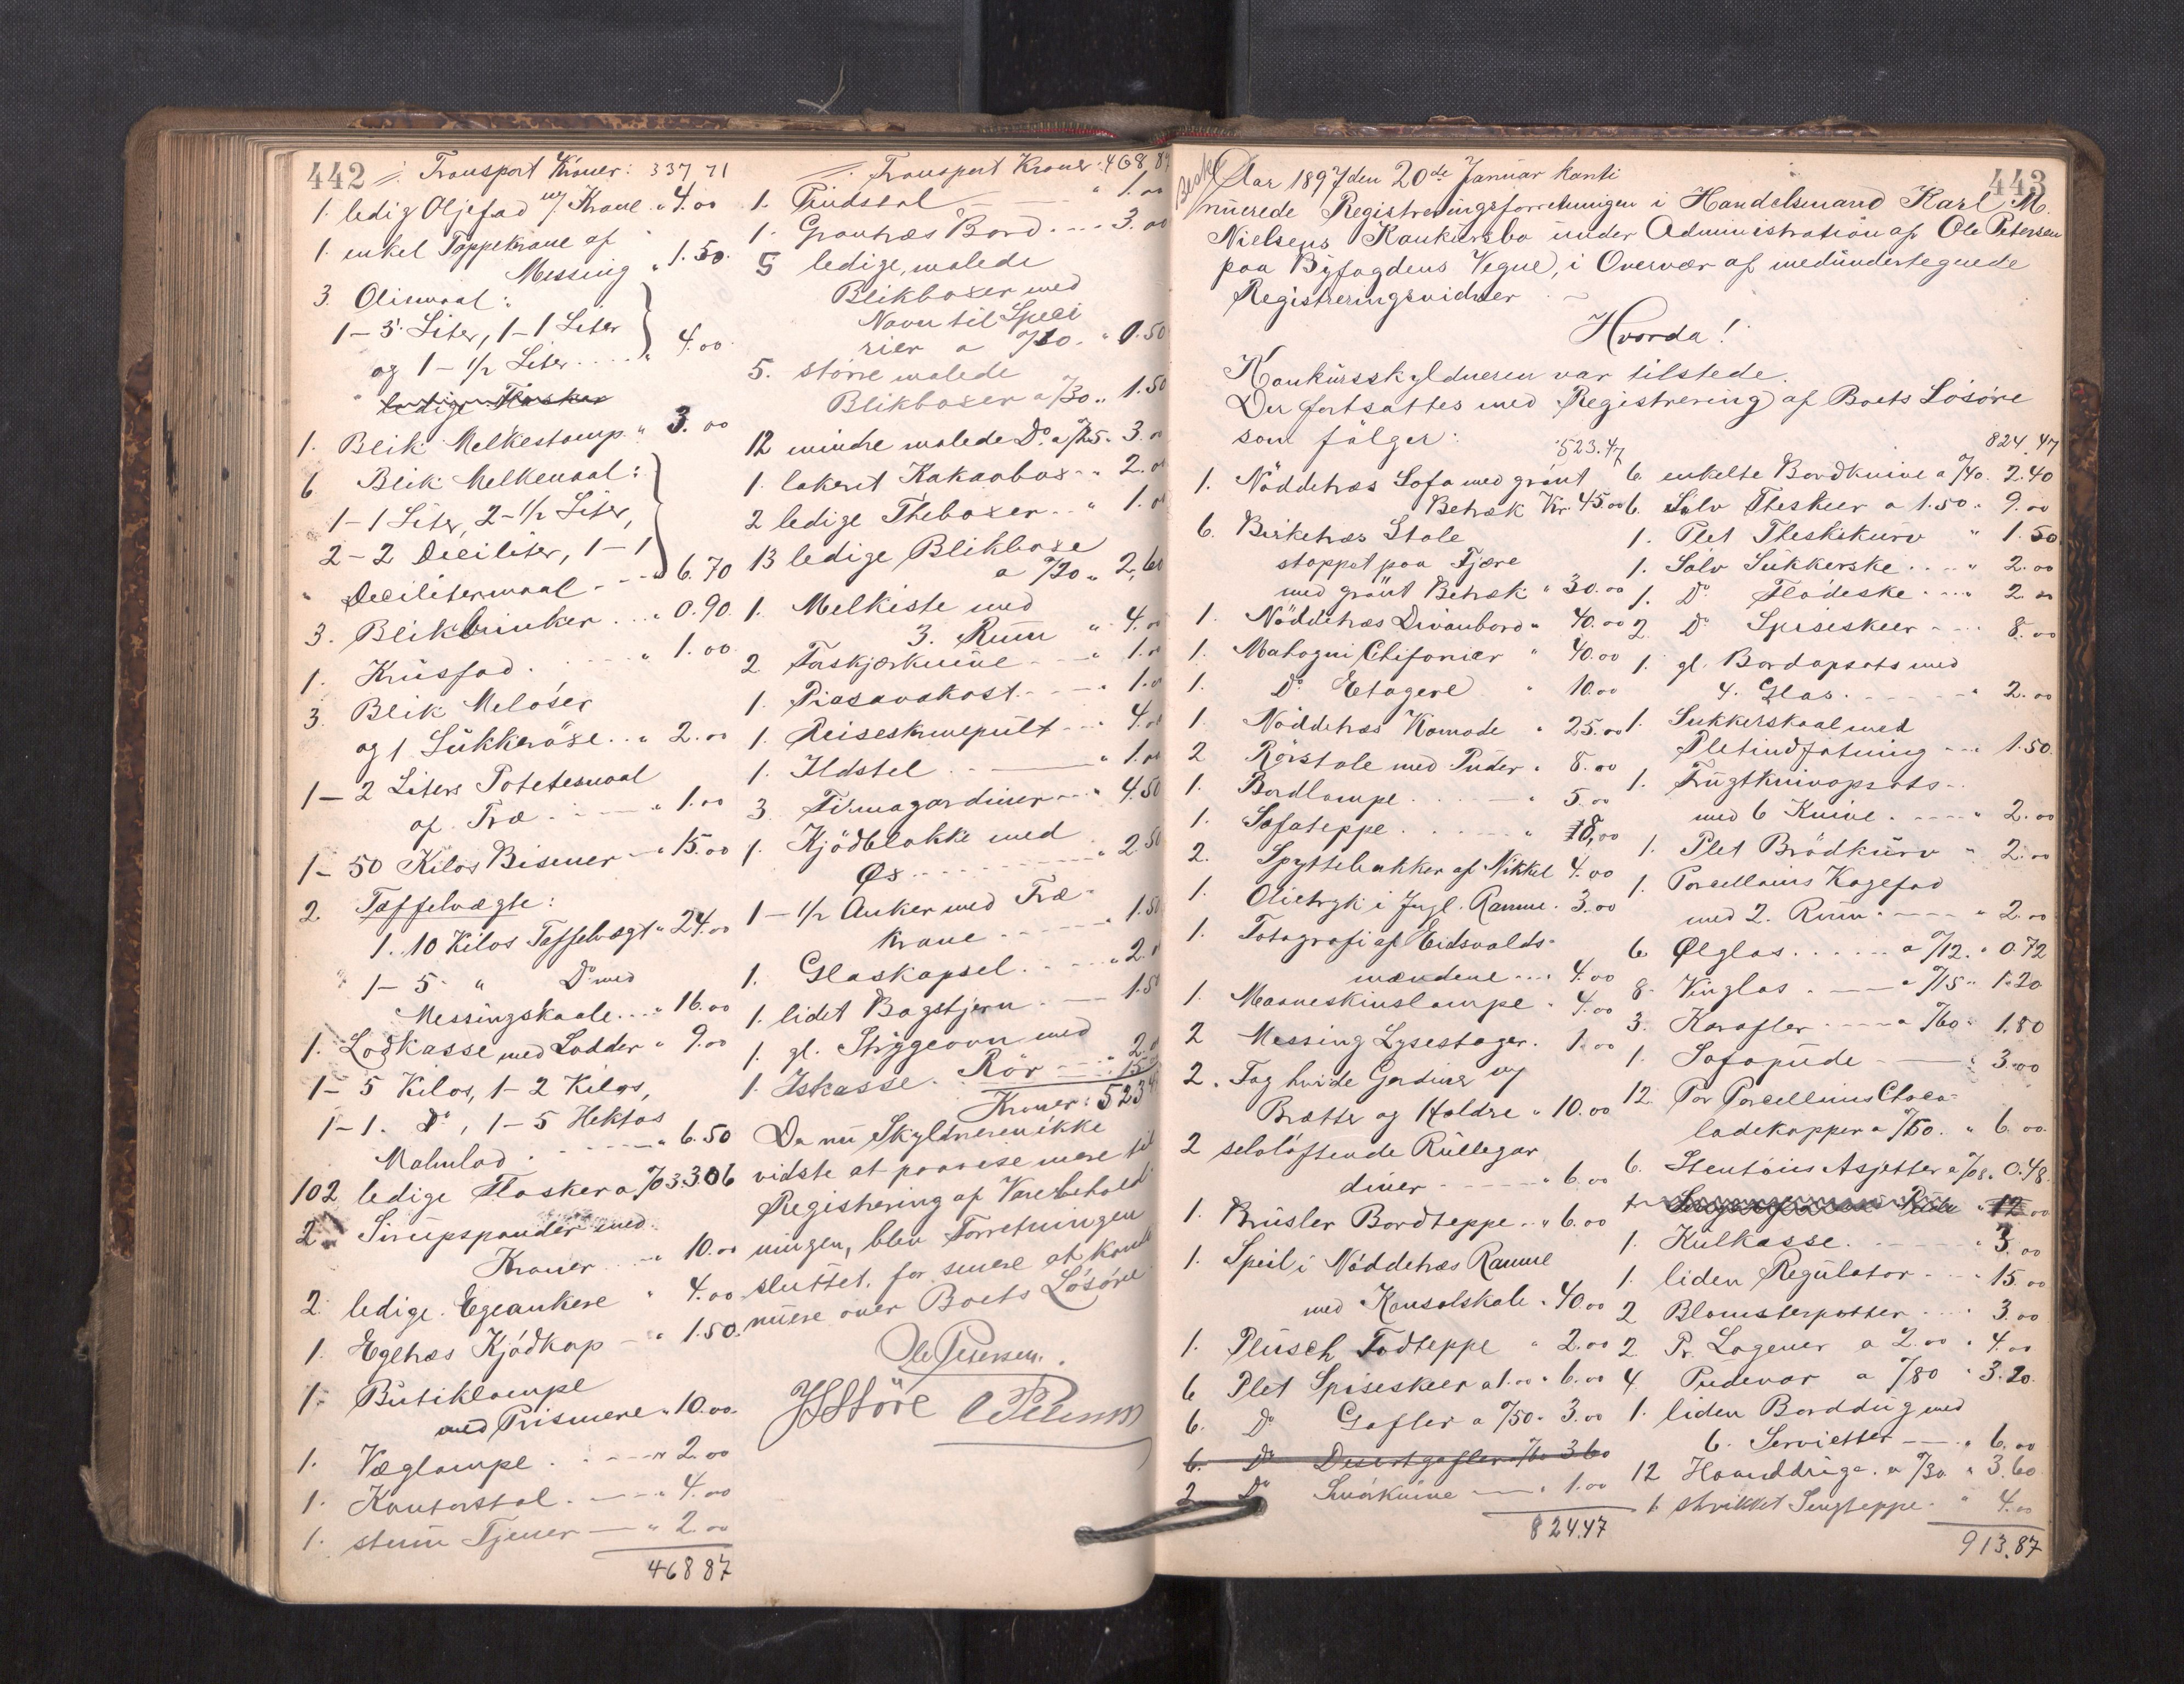 442
Transport Kroner: 337 71
1. ledig Oljefad m/. Krane " 4.00
1. enkel Tappekrane af
Messing " 1.50.
3. Oliemaal:
1 - 5 Liter, 1 - 1 Liter
og 1 - 1/2 Liter .... " 4.00
ledige Flasker
1. Blik Melkestamp " 3.00
6 Blik Melkemaal:
1 - 1 Liter, 2 - 1/2 Liter,
2 - 2 Deciliter, 1 - 1
Decilitermaal - - - " 6.70
3. Blik ... " 0.90
1. Krusfad. " 1.00
3. Blik Meløser
og 1 Sükkerøse .. " 2.00
1 - 2 Liters Potetesmaal
af Træ . - " 1.00
1 - 50 Kilos Bismer - " 15.00
2. Taffelvægte:
1. 10 Kilos Taffelvægt " 24.00
1 - 5 " Do. med
Messingskaale ... " 16.00
1. Lodkasse med Lodder " 9.00
1 - 5 Kilos, 1 - 2 Kilos,
1 - 1. Do, 1 - 5 Hektos
Malmlod . - - - " 6.50
102 ledige Flasker a %03 3.06
2. Sirupspander med
Kraner .. - " 10.00
2 ledige Egeankere " 4.00
1. Egetræs Kjødkap - " 1.50.
1. Butiklampe
med Prismere " 10.00.
1. Væglampe . - - " 2.00
1. Kontorstol . - - " 4.00
1. stum Tjener - " 2.00
468 87
Transport Kroner: 468,87
1. Pindstol - - " 1.00
1. Grantræs Bord ... 3.00
5 ledige, malede
Blikboxer med
Navn til Speci
rier a %10. " 0.50
5. større malede
Blikboxer a %30 .. 1.50
12 mindre malede Do. a %25 " 3.00
1. lakeret Kakaobox - " 2.00
2 ledige Theboxer .. " 1.00
13 ledige Blikboxe
a %20 " 2,60
1. Melkiste med
3. Rum " 4.00
2 Forskjærknive - - " 1.00
1. Piasavakost - - - " 1.00
1. Reiseskrivepült - - " 4.00
1. Ildstel . - " 1.00
3. Firmagardiner - - " 4.50
1. Kjødblokke med
Øx . . - - - - " 2.50
1 - 1/2 Anker med Træ-
krane . - - - 1.50
1. Glaskapsel . . . . " 2.00
1. lidet Bogstjern . - - 1.50
1. gl. Strygeovn med
Rør - - - 2.00
1. Iskasse. " 15
Kroner: 523 47
Da nu Skyldneren ikke
vidste at paavise mere til
Registrering af Varebehold
ningen, blev Forretningen
sluttet, for senere at konti
nuere over Boets Løsøre
Ole Petersen.
443
Aar 1897 den 20de Januar konti
nuerede Registreringsforretningen i Handelsmand Karl M.
Nielsens Konkursbo under Administration af Ole Petersen
paa Byfogdens Vegne, i Overvær af medundertegnede
Registreringsvidner . -
Hvorda!
Konkursskyldneren var tilstede.
Der fortsattes med Registrering af Boets Løsøre
som følger:
523.47
1. Nøddetræs Sofa med grønt
Betræk Kr. 45.00
6. Birketræs Stole
stoppet paa Fjære
med grønt Betræk " 30.00
1. Nøddetræs Divanbord " 40.00
1. Mahogni Chifonier " 40.00
1. Do. Etagere " 10.00
1. Nøddetræs Komode " 25.00
2 Rørstole med Puder " 8.00
1. Bordlampe . . - " 5.00
1. Sofateppe . . . . " 8,00
2. Spyttebakker af Nikkel 4.00
1. Olietryk i Jugl. Ramme. 3.00
1. Fotografi af Eidsvolds-
mændene ... 4.00
1. Maaneskinslampe " 4.00
2 Messing Lysestager. 1.00
2. Fag hvide Gardiner og
Brætter og Holdre " 10.00
2 selvløftende Rüllegar
diner - - - - " 6.00
1. Brüsler Bordteppe .. " 6.00
1. Speil i Nøddetræs Ramme
med Konsolskab " 40.00
1. Plüsch Fodteppe " 2.00
6 Plet Spiseskeer a 1.00 " 6.00
6. Do Gafler a %50 " 3.00
6. Do Desertgafler %60 3.60
2 Do Smørknive - - " 1.00
824.47
824.47
6. enkelte Bordknive a %40. 2.40
6. Sølv Theskeer a 1.50 " 9.00
1. Plet Theskekurv " 1.50
1. Sølv Sükkerske ... " 2.00
1. Do Flødeske .... 2.00
2. Do Spiseskeer - - - 8.00
1. gl. Bordopsats med
4. Glas. - - - - " 2.00
1. Sukkerskaal med
Pletindfatning - - " 1.50
1. Frugtknivopsats -
med 6 Knive . - - - " 2.00
1. Plet Brødkürv " 2.00
1. Porcellains Kagefad
med 2. Rum . - - - " 2.00
6 Ølglas . . . . . a %12. " 0.72
8. Vinglas . - " %15 " 1.20
3. Karafler . - - a %60 " 1.80
1. Sofapude - - " 3.00
12. Par Porcellins Choco-
ladekopper a %50. " 6.00
6. Stentøies Asjetter a %08 " 0.48.
1. Külkasse. - - " 3.00
1. liden Regülator . - - 15.00
2 Blomsterpotter . - - 3.00
2 Pr. Lagener a 2.00 " 4.00
4 Pudevar a %80 " 3.20
1. liden Borddug med
6. Servietter - - " 6.00
12 Haanddüge. a %30 " 3.60
1. strikket Sengteppe. " 4.00
913.87